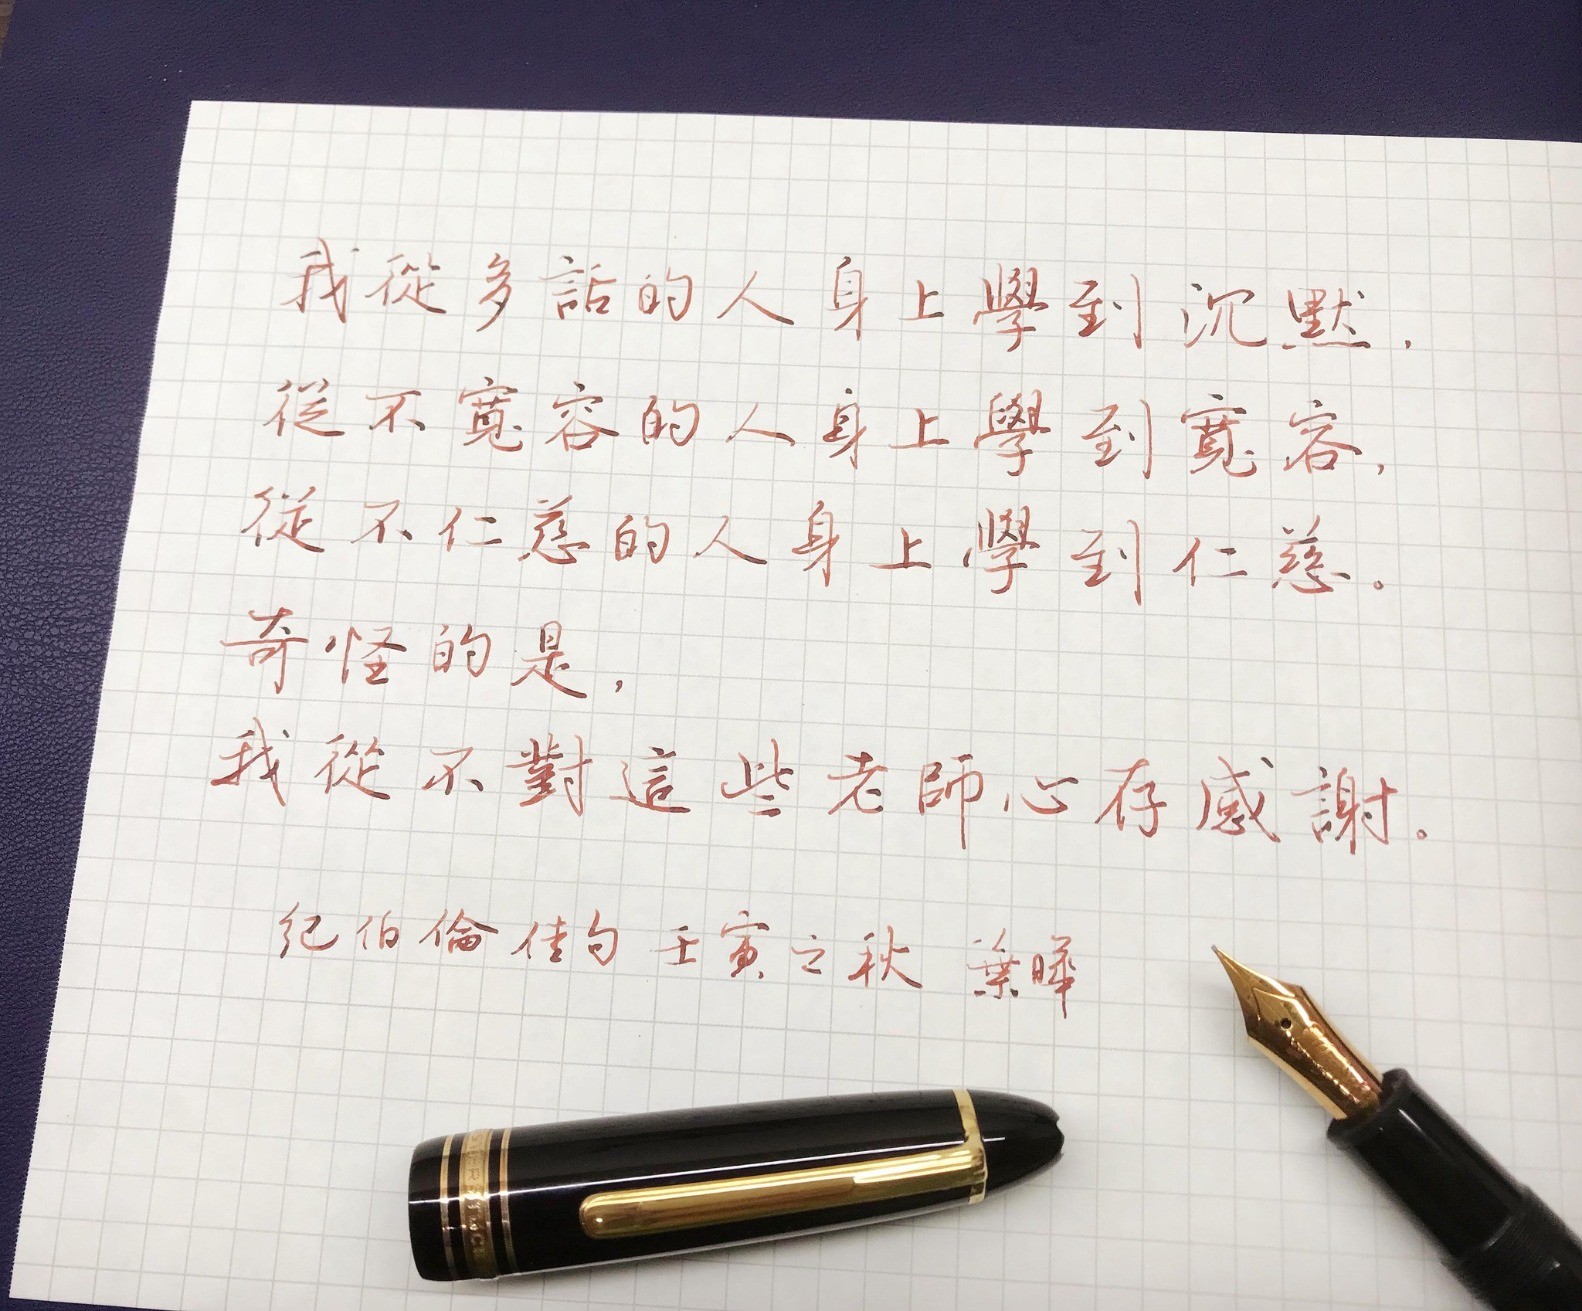 我從多話的人身上學到沉默，
從不寬容的人身上學到寬容，
從不仁慈的人身上學到仁慈。
奇怪的是，
我從不對這些老師心存感謝。
紀伯倫佳句 壬寅之秋 葉曄